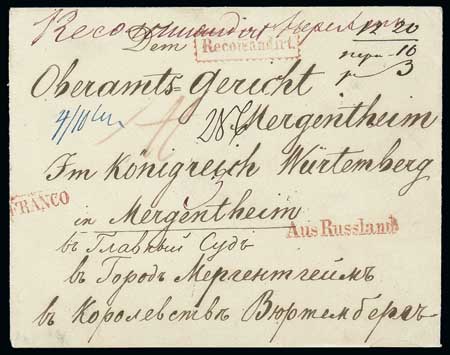 Recommandirt
Dem Recomandirt. 12 20
10
Oberamts=Gericht 3
4/10 Mergentheim
Im Königreich Würtemberg
FRANCO
in Mergentheim
Aus Russland
въ Главный Судъ
въ Городъ Мергентгеймъ
въ Королевствѣ Вюртембергъ